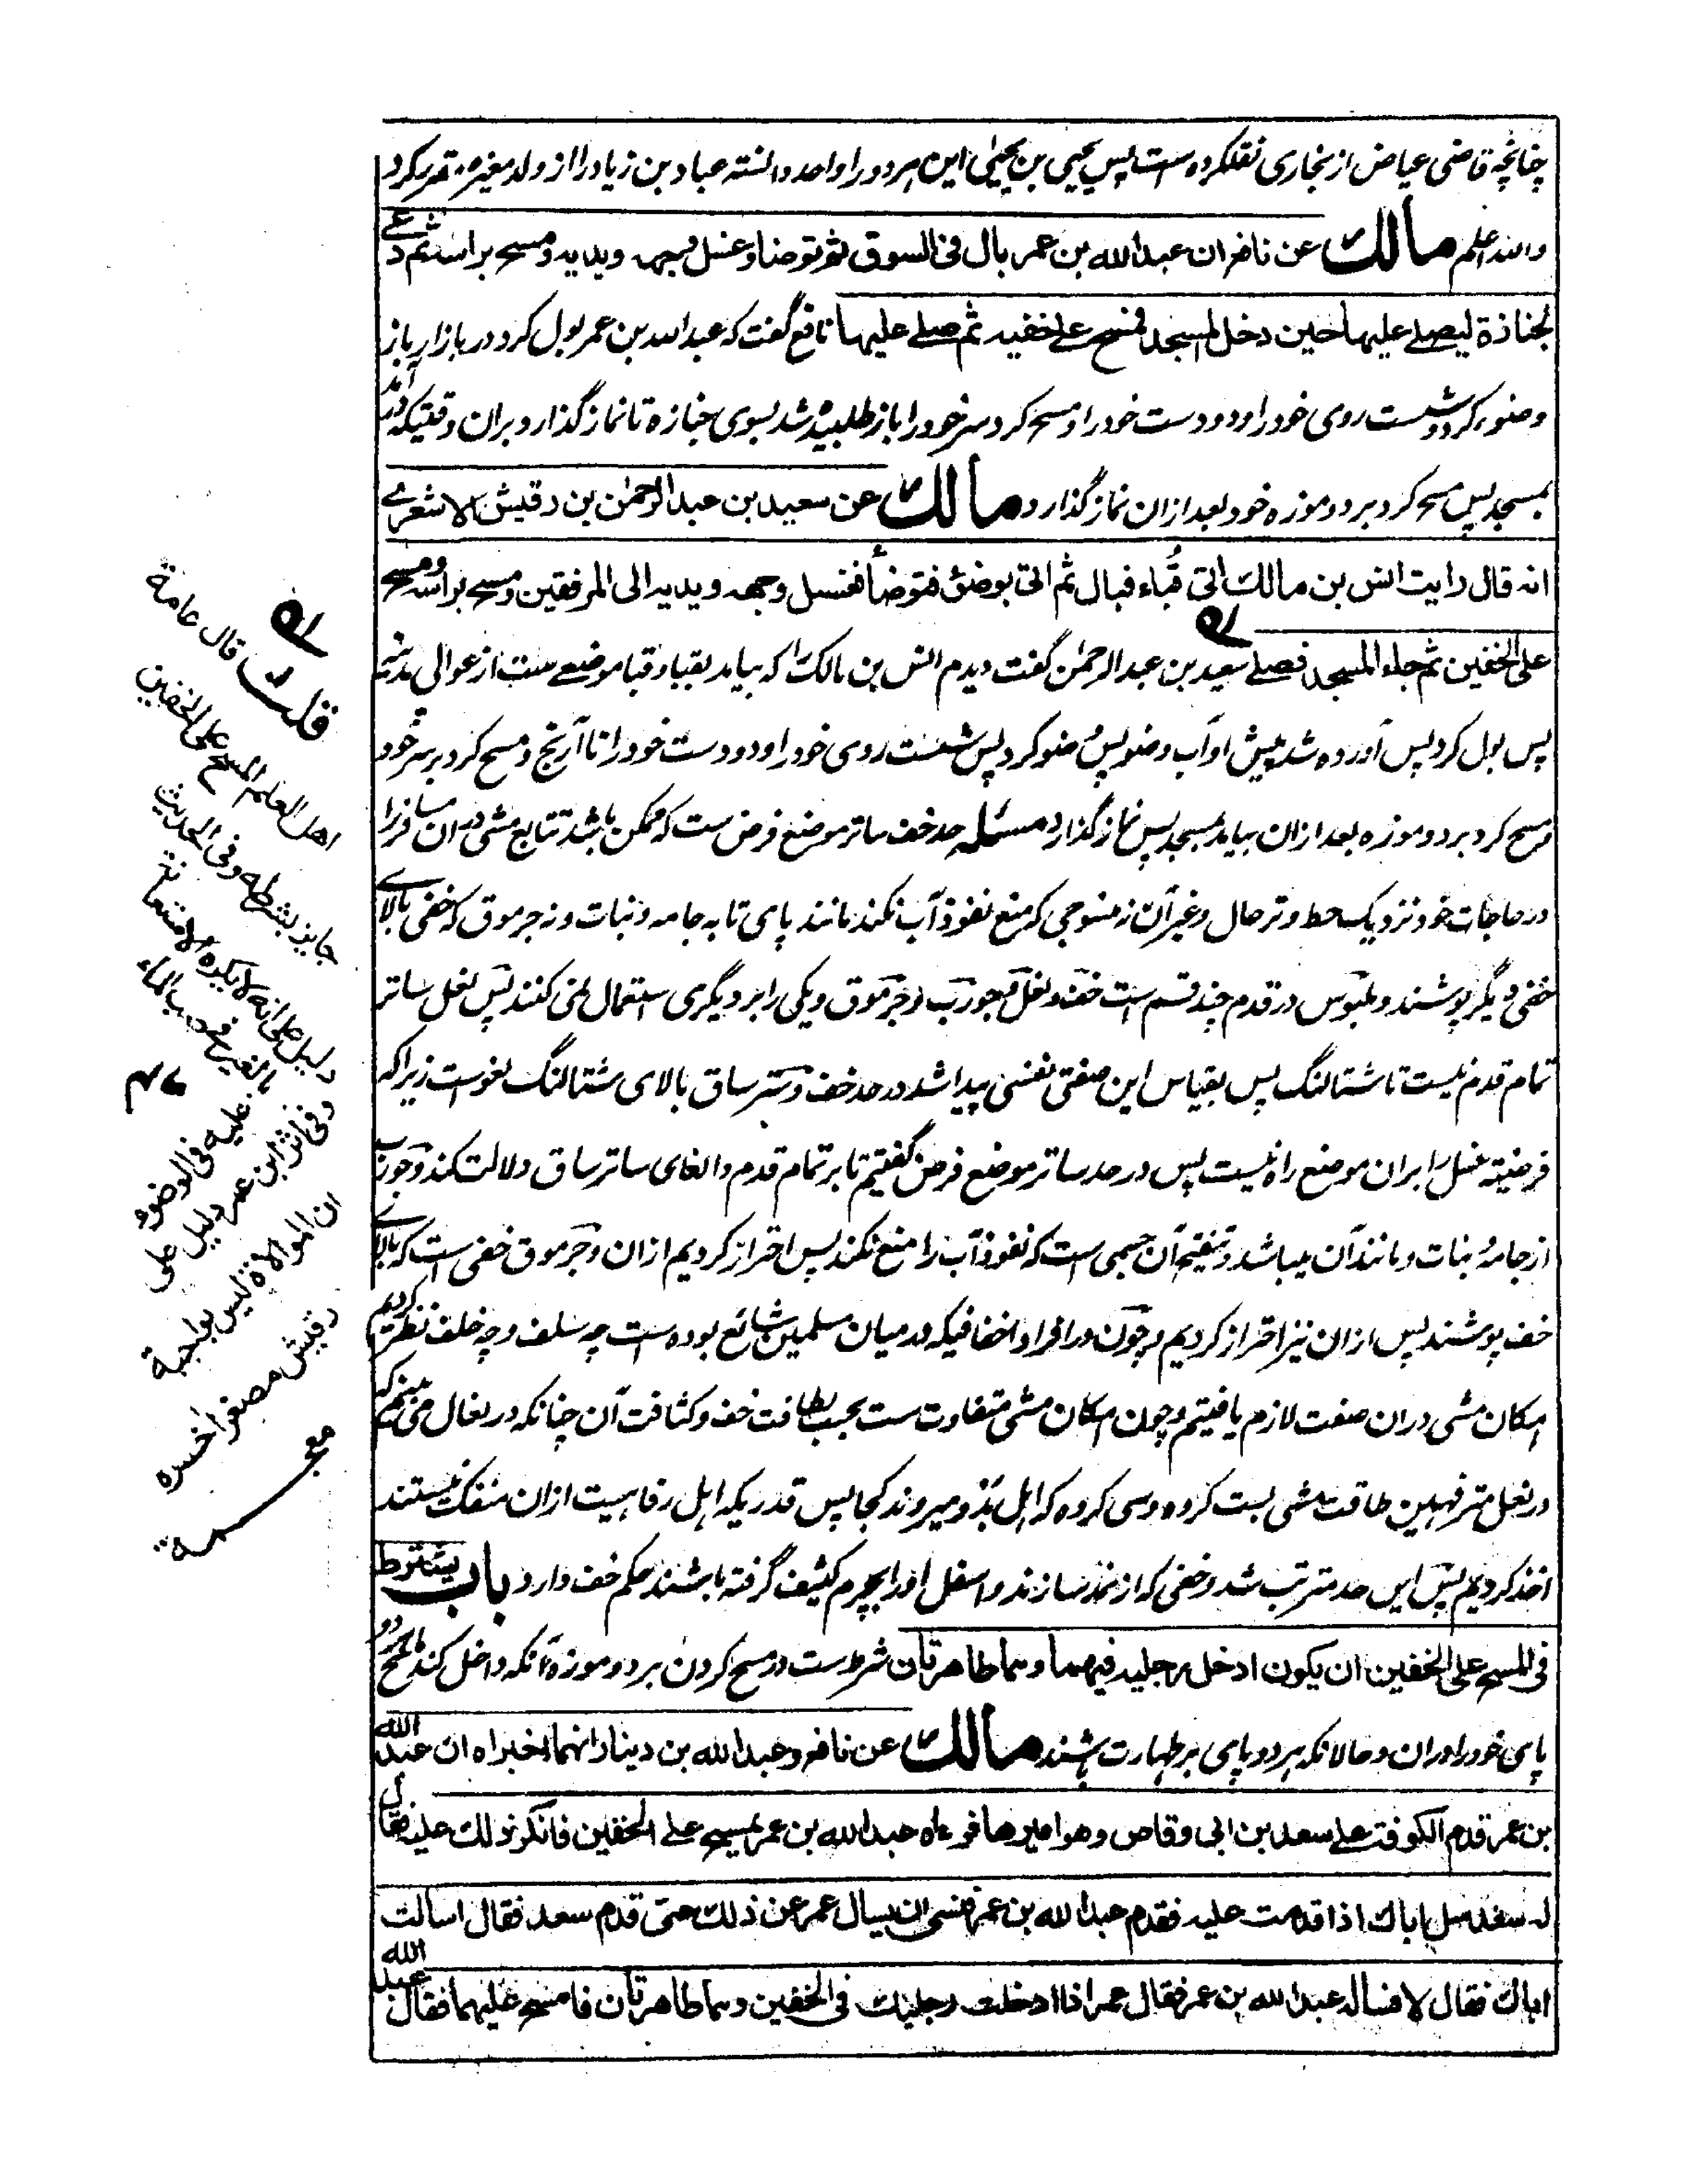 چنانچه قاضی عیاض از بخاری نقلکرده ست پس یحیی بن یحیی این هر دو را واحد دانسته عباد بن زیاد را از ولد مغیره تقریر کرد
والله اعلم مالك عن نافع ان عبد الله بن عمر بال فی السوق ثم توضا وغسل وجهه ویدیه ومسح براسه ثم دعے
لجنازة لیصلے علیها حین دخل المسجد فمسح علے خفیه ثم صلے علیها نافع گفت که عبد الله بن عمر بول کرد در بازار باز
وضوء کرد و شست روی خود را و دو دست خود را و مسح کرد سر خود را باز طلبیده شد بسوی جنازه تا نماز گذارد بران وقتیکه در آمد
بمسجد پس مسح کرد بر دو موزه خود بعد ازان نماز گذارد مالك عن سعید بن عبد الرحمٰن بن رقیش الاشعرے
انه قال رایت انس بن مالك اتی قُباء فبال ثم اتی بوضوءٍ فتوضأ فغسل وجهه ویدیه الی المرفقین ومسح براسه ومسح
علی الخفین ثم جاء المسجد فصلے سعید بن عبد الرحمٰن گفت دیدم انس بن مالک را که بیامد بقبا و قبا موضعے ست از عوالی مدینه
پس بول کرد پس آورده شد پیش او آب وضو پس وضو کرد پس شست روی خود را و دو دست خود را تا آرنج و مسح کرد بر سر خود
و مسح کرد بر دو موزه بعد ازان بیامد بمسجد پس نماز گذارد مسئله حد خف ساتر موضع فرض ست که ممکن باشد تتابع مشی دران مسافر را
در حاجات خود نزدیک حط و ترحال و غیر آن نه منسوجی که منع نفوذ آب نکند مانند پای تابه جامه و نبات و نه جرموق که خفی بالاے
خفی دیگر پوشند و ملبوس در قدم چند قسم است خف و نعل و جورب و جرموق و یکی را بر دیگری استعمال نمی کنند پس نعل ساتر
تمام قدم نیست تا شتالنگ پس بقیاس این صفتی نفسی پیدا شد در حد خف و ستر ساق بالای شتالنگ لغوست زیرا که
فرضیة غسل را بران موضع راه نیست پس در حد ساتر موضع فرض گفتیم تا بر تمام قدم و الغای ساتر ساق دلالت کند و جورب
از جامه و نبات و مانند آن میباشد و تنقیح آن جسمی است که نفوذ آب را منع نکند پس احتراز کردیم ازان و جرموق خفی است که بالاے
خف پوشند پس ازان نیز احتراز کردیم و چون در افراد اخفافیکه درمیان مسلمین شائع بوده ست چه سلف و چه خلف نظر کردیم
امکان مشی دران صفت لازم یافتیم و چون امکان مشی متفاوت ست بحسب لطافت خف و کثافت آن چنانکه در نعال می بینیم که
در نعل مترفهین طاقت مشی بست کروه و سی کروه که اهل بذو میروند کجا پس قدریکه اهل رفاهیت ازان منفک نیستند
اخذ کردیم پس این حد مترتب شد و خفی که از نمد سازند و اسفل او را بچرم کثیف گرفته باشند حکم خف دارد باب یشترط
فی المسح علی الخفین ان یکون ادخل رجلیه فیهما وهما طاهرتان شرط ست در مسح کردن بر دو موزه آنکه داخل کند هر دو
پای خود را دران و حالانکه هر دو پای بر طهارت باشند مالك عن نافع وعبد الله بن دینار انهما اخبراه ان عبد الله
بن عمر قدم الکوفة علے سعد بن ابی وقاص وهو امیرها فراه عبد الله بن عمر یمسح علے الخفین فانکر ذلك علیه فقال
له سعد سل اباك اذا قدمت علیه فقدم عبد الله بن عمر فنسی ان یسال عمر عن ذلك حتی قدم سعد فقال اسالت
اباك فقال لا فساله عبد الله بن عمر فقال عمر اذا ادخلت رجلیك فی الخفین وهما طاهرتان فامسح علیهما فقال عبد الله
قلت قال عامة
اهل العلم المسح علی الخفین
جایز بشرطه وفی الحدیث
دلیل علی انه لا یکره الاستعانة
بالغیر فی صب الماء
علیه فی الوضوء
وفی اثر ابن عمر دلیل علی
ان الموالاة لیس بواجبة
رقیش مصغر اخره
معجمة